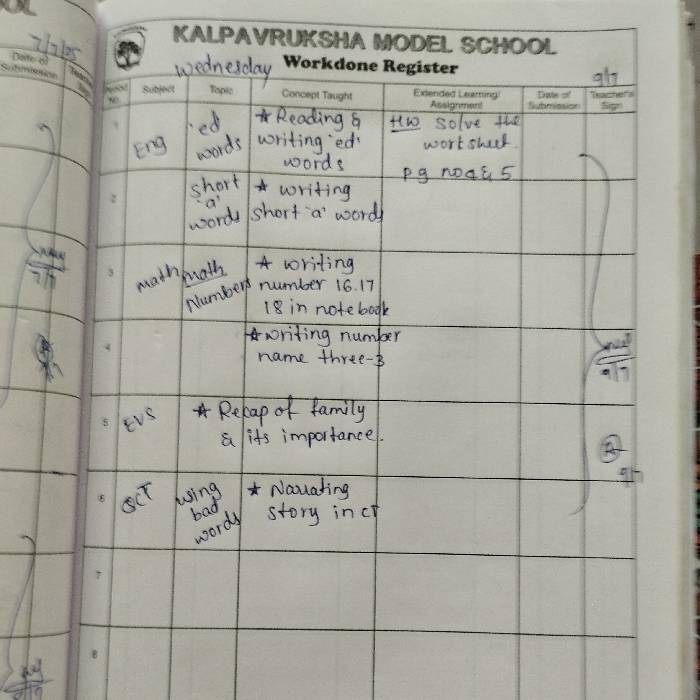 KALPAVRUKSHA MODEL SCHOOL
Wednesday Workdone Register
9/7
7/7/25
Date of
Submission
Period
No.
Subject
Topic
Concept Taught
Extended Learning/
Assignment
Date of
Submission
Teacher's
Sign
1
Eng
'ed'
words
★ Reading &
writing 'ed'
words
HW solve the
worksheet.
pg no 4 & 5
2
short
'a'
words
★ writing
short 'a' words
3
math
math
Numbers
★ writing
number 16.17
18 in notebook
4
★ writing number
name three-3
9/7
5
EVS
★ Recap of family
& its importance.
9/7
6
wing
bad
words
★ Narrating
story in CT
7
8
7/7